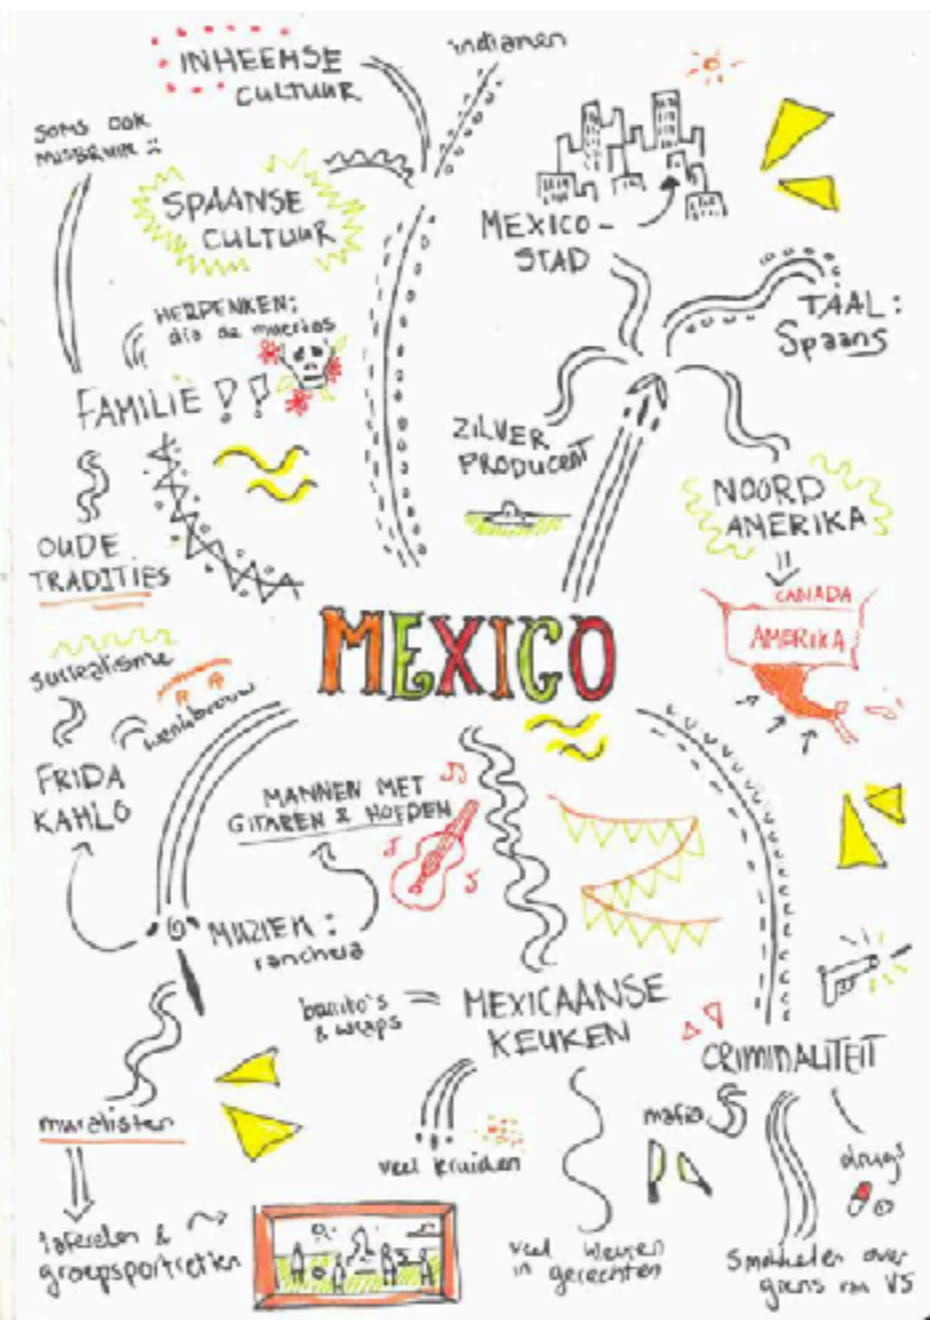 INHEEMSE
CULTUUR
indianen
SOMS OOK
MISBRUIK ::
SPAANSE
CULTUUR
MEXICO-
STAD
TAAL:
Spaans
HERDENKEN:
dia de muertos
FAMILIE !!
ZILVER
PRODUCENT
NOORD
AMERIKA
OUDE
TRADITIES
CANADA
AMERIKA
MEXICO
surrealisme
wenkbrauw
FRIDA
KAHLO
MANNEN MET
GITAREN & HOEDEN
MUZIEK:
ranchera
burrito's
& wraps
=
MEXICAANSE
KEUKEN
CRIMINALITEIT
muralisten
veel kruiden
mafia
drugs
taferelen &
groepsportretten
veel kleuren
in gerechten
Smokkelen over
grens van VS